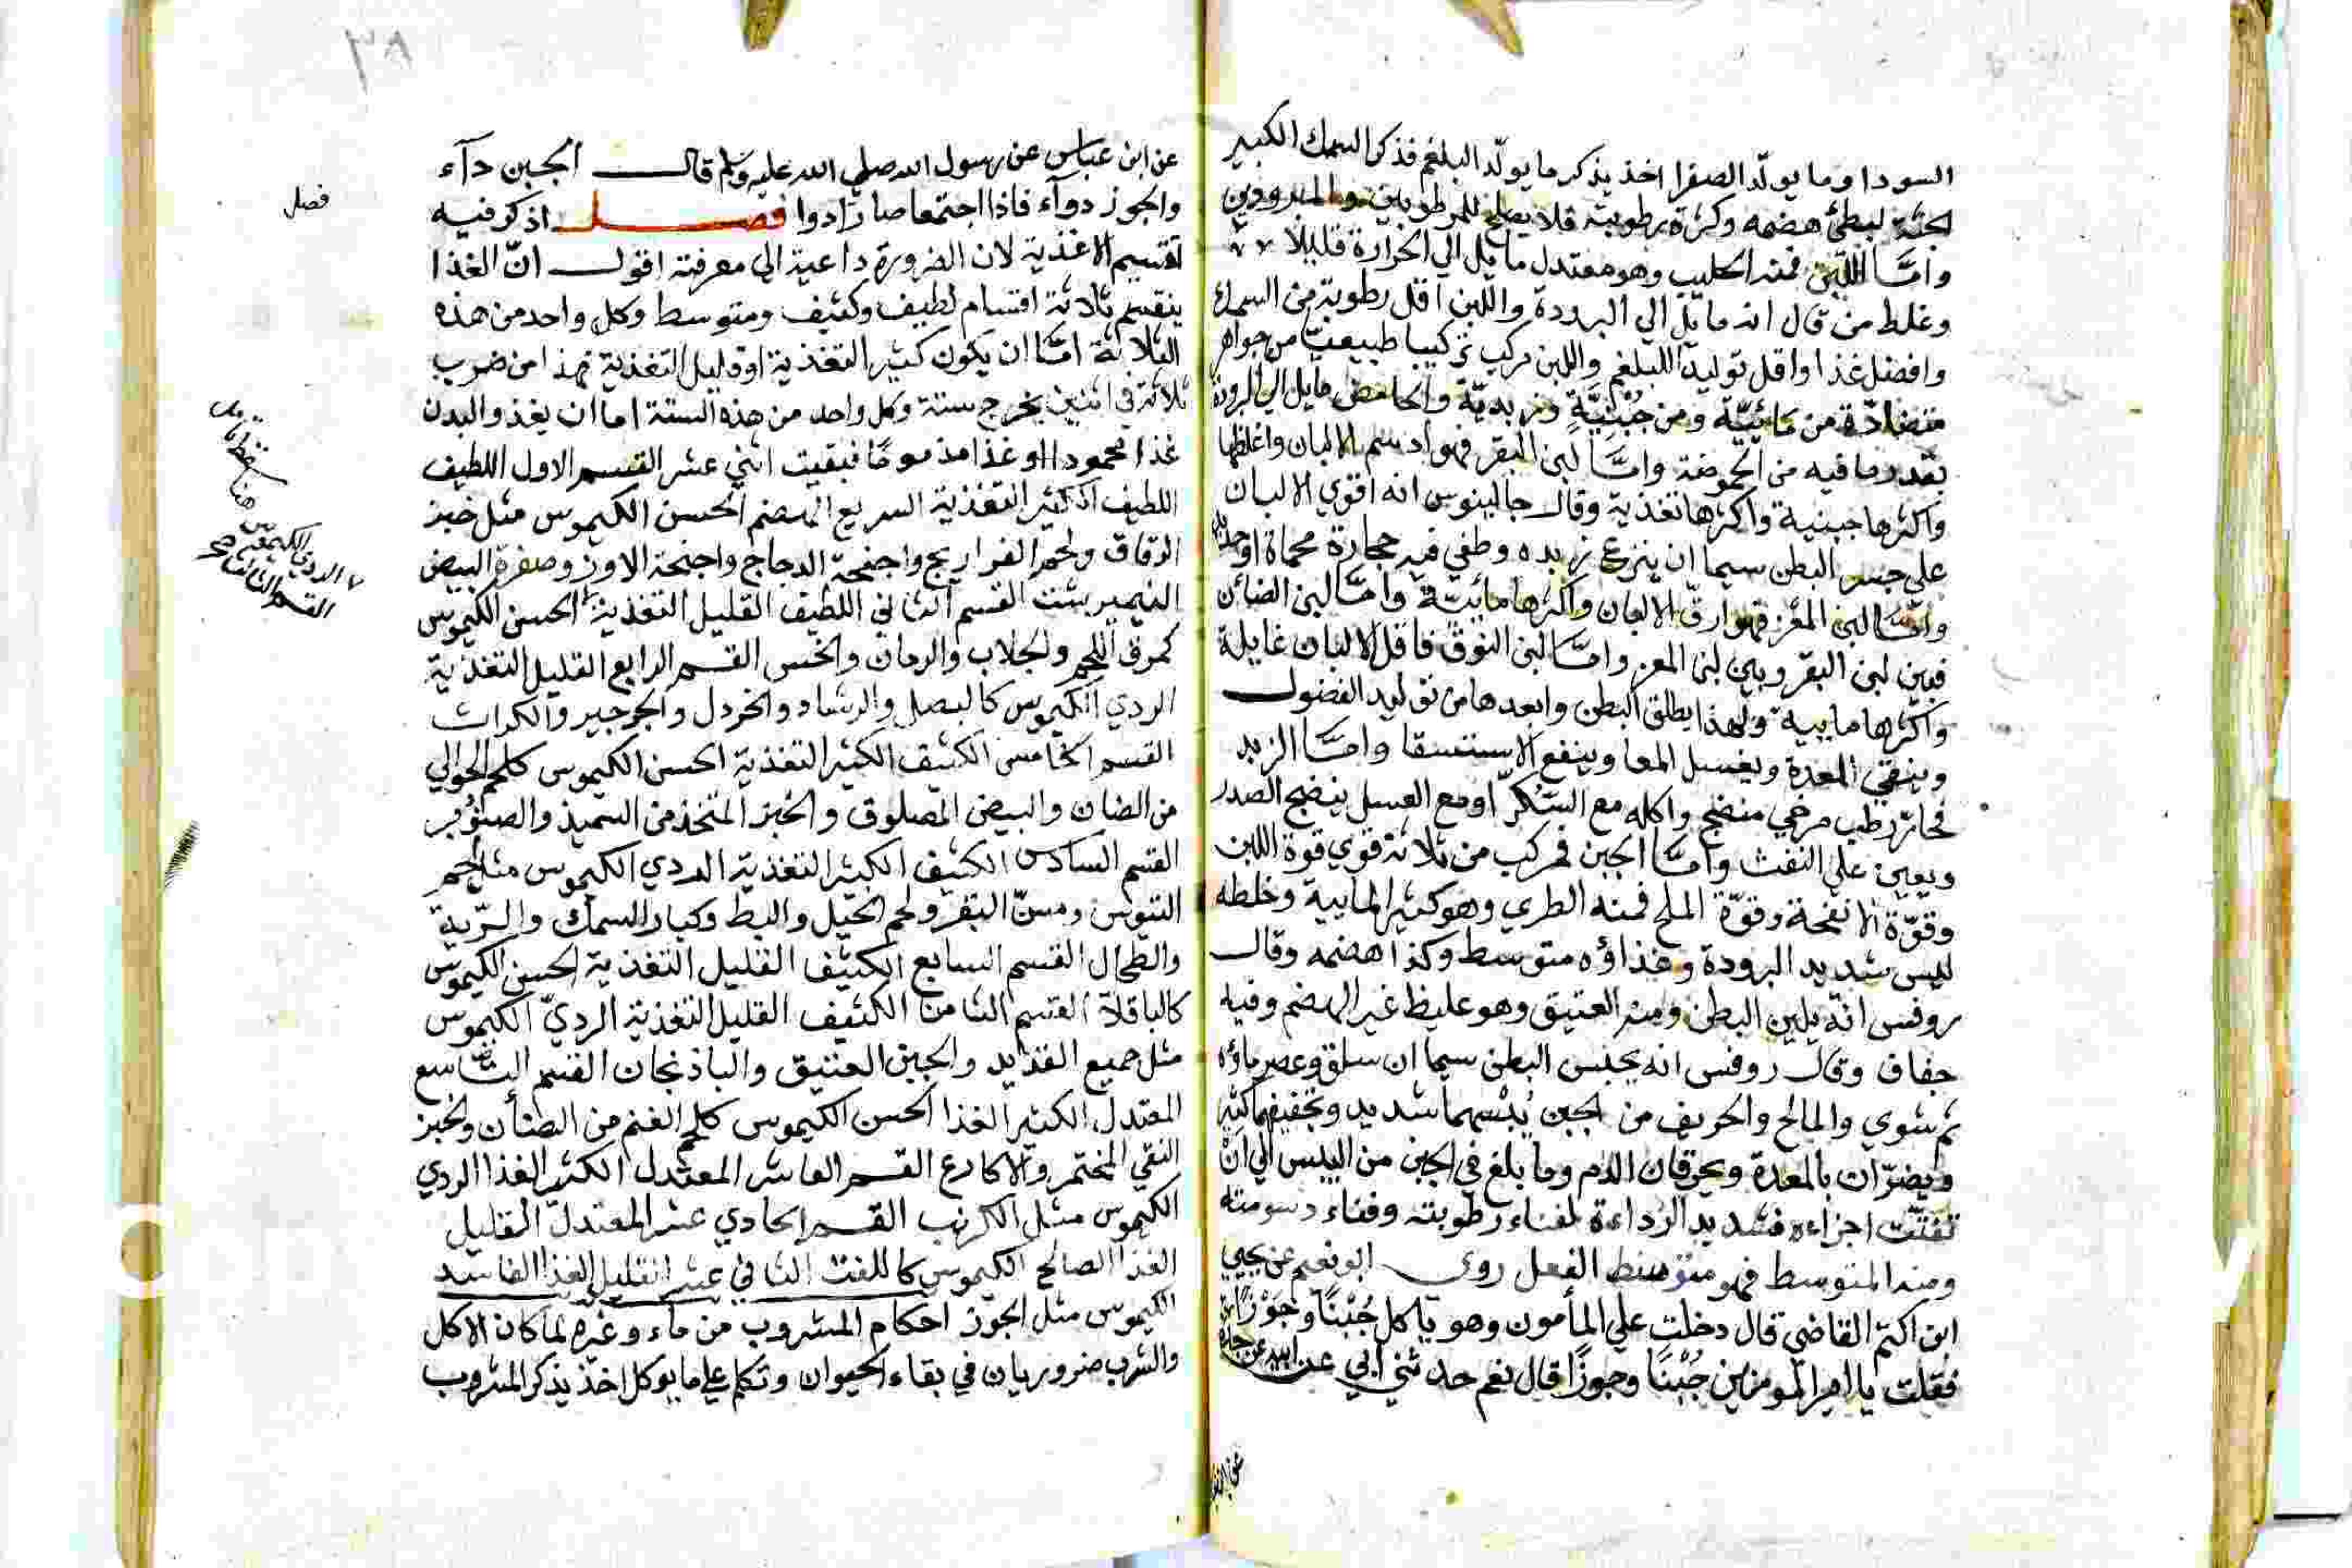 السودا وما يولّد الصفرا اخذ يذكر ما يولّد البلغم فذكر السمك الكبير
الجثة لبطئ هضمه وكثرة رطوبته فلا يصلح للمرطوبين والمبرودين
وامّا اللبن فمنه الحليب وهو معتدل مايل الي الحرارة قليلا
وغلط من قال انه مايل الي البرودة واللبن اقل رطوبة من السمك
وافضل غذا واقل توليدا للبلغم واللبن مركب تركيبا طبيعيّا من جواهر
متضادّة من مائيّة ومن جُبْنيَّةٍ وزبديّة والحامض مايل الي البرودة
بقدر ما فيه من الحموضة وامّا لبن البقر فهو ادسم الالبان واغلظها
واكثرها جبنية واكثرها تغذية وقال جالينوس انه اقوي الالبان
علي حبس البطن سيما ان ينزع زبده وطفي فيه حجارة محماة او حديد
وامّا لبن المعز فهو ارقّ الالبان واكثرها مائيّة وامّا لبن الضائن
فبين لبن البقر وبين لبن المعز وامّا لبن النوق فاقل الالبان غايلة
واكثرها ماييه ولهذا يطلق البطن وابعدها من توليد الفضول
وينقي المعدة ويغسل المعا وينفع الاستسقا وامّا الزبد
فحار رطب مرخي منضج واكله مع السّكر او مع العسل ينضج الصدر
ويعين علي النفث وامّا الجبن فمركب من ثلاثة قوي قوة اللبن
وقوّة الانفحة وقوّة الملح فمنه الطري وهو كثير الماييه وخلطه
ليس شديد البرودة وغذاؤه متوسط وكذا هضمه وقال
روفس انّه يلين البطن ومنه العتيق وهو غليظ غير الهضم وفيه
جفاف وقال روفس انه يحبس البطن سيما ان سلق وعصر ماؤه
ثم شوي والمالح والحريف من الجبن يُبْسهما شديد وتجفيفهما كثير
ويضرّان بالمعدة ويحرقان الدم وما بلغ في الجبن من اليبس الي انْ
تفتّت اجزاءه فشديد الرداءة لفناء رطوبته وفناء دسومته
ومنه المتوسط فهو متوسط الفعل روي ابو نعيم عن يحيي
ابن اكثم القاضي قال دخلت علي المأمون وهو ياكل جُبْنًا وجَوْزًا
فقلت يا امير المومنين جُبْنًا وجوزًا قال نعم حدثني ابي عن ابيه عن جده
عن ابن عباس عن رسول الله صلي الله عليه وسلم قال الجبن دآء
والجوز دوآء فاذا اجتمعا صارا دوا فصل اذكر فيه
تقسيم الاغذية لان الضرورة داعية الي معرفته اقول انّ الغذا
ينقسم ثلاثة اقسام لطيف وكثيف ومتوسط وكل واحد من هذه
الثلاثة امّا ان يكون كثير التغذية او قليل التغذية فهذا من ضرب
ثلاثة في اثنين يخرج ستة وكل واحد من هذه الستة اما ان يغذو البدن
غذا محمودا او غذا مذموما فبقيت اثني عشر القسم الاول اللطيف
اللطيف الكثير التغذية السريع الهضم الحسن الكيموس مثل خبز
الرقاق ولحم الفراريج واجنحة الدجاج واجنحة الاوز وصفرة البيض
النيمبرشت القسم الثاني اللطيف القليل التغذية الحسن الكيموس
كمرق اللحم والجلاب والرمان والخس القسم الرابع القليل التغذية
الردي الكيموس كالبصل والرشاد والخردل والجرجير والكراث
القسم الخامس الكثيف الكثير التغذية الحسن الكيموس كلحم الحوالي
من الضان والبيض المصلوق والخبز المتخذ من السميذ والصنوبر
القسم السادس الكثيف الكثير التغذية الردي الكيموس مثل لحم
التيوس ومسنّ البقر ولحم الخيل والبط وكبار السمك والرّية
والطحال القسم السابع الكثيف القليل التغذية الحسن الكيموس
كالباقلآ القسم الثامن الكثيف القليل التغذية الرديّ الكيموس
مثل جميع القدايد والجبن العتيق والباذنجان القسم التاسع
المعتدل الكثير الغذا الحسن الكيموس كلحم الغنم من الضأن والخبز
النقي المختمر والاكارع القسم العاشر المعتدل الكثير الغذا الردي
الكيموس مثل الكرنب القسم الحادي عشر المعتدل القليل
الغذا الصالح الكيموس كاللفت الثاني عشر القليل الغذا الفاسد
الكيموس مثل الجوز احكام المشروب من ماء وغيره لما كان الاكل
والشرب ضروريان في بقاء الحيوان وتكلم علي ما يوكل اخذ يذكر المشروب
فصل
٣٨